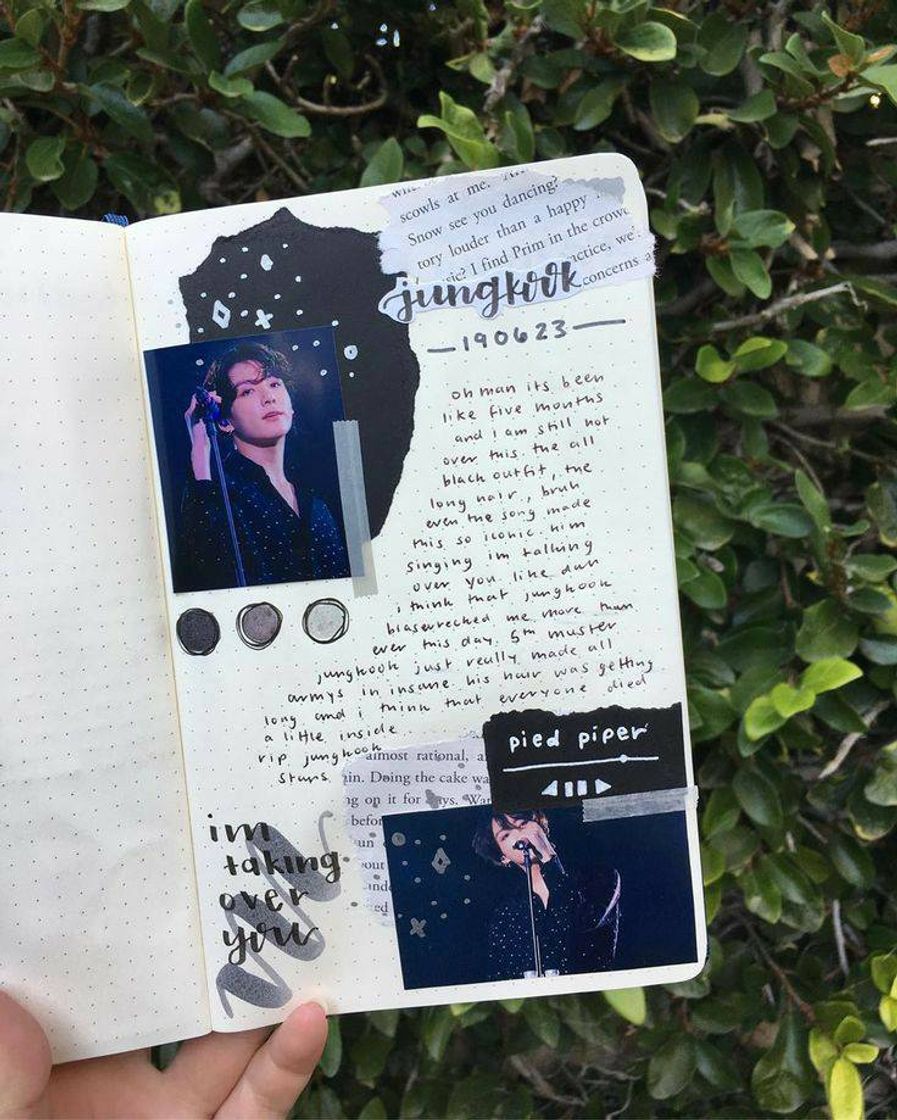 scowls at me.
Snow see you dancing?
tory louder than a happy
sic? I find Prim in the crowd
actice, we'
concerns a
jungkook
190623
oh man its been
like five months
and i am still not
over this. the all
black outfit, the
long hair, bruh
even the song made
this so iconic him
singing im talking
over you like duh
i think that jungkook
biaswrecked me more than
ever this day. 5th muster
jungkook just really made all
armys in insane his hair was getting
long and i think that everyone died
a little inside
rip jungkook
stans
almost rational, a
in. Doing the cake wa
ng on it for days. War
befor
un
out
ed
pied piper
im
taking
over
you